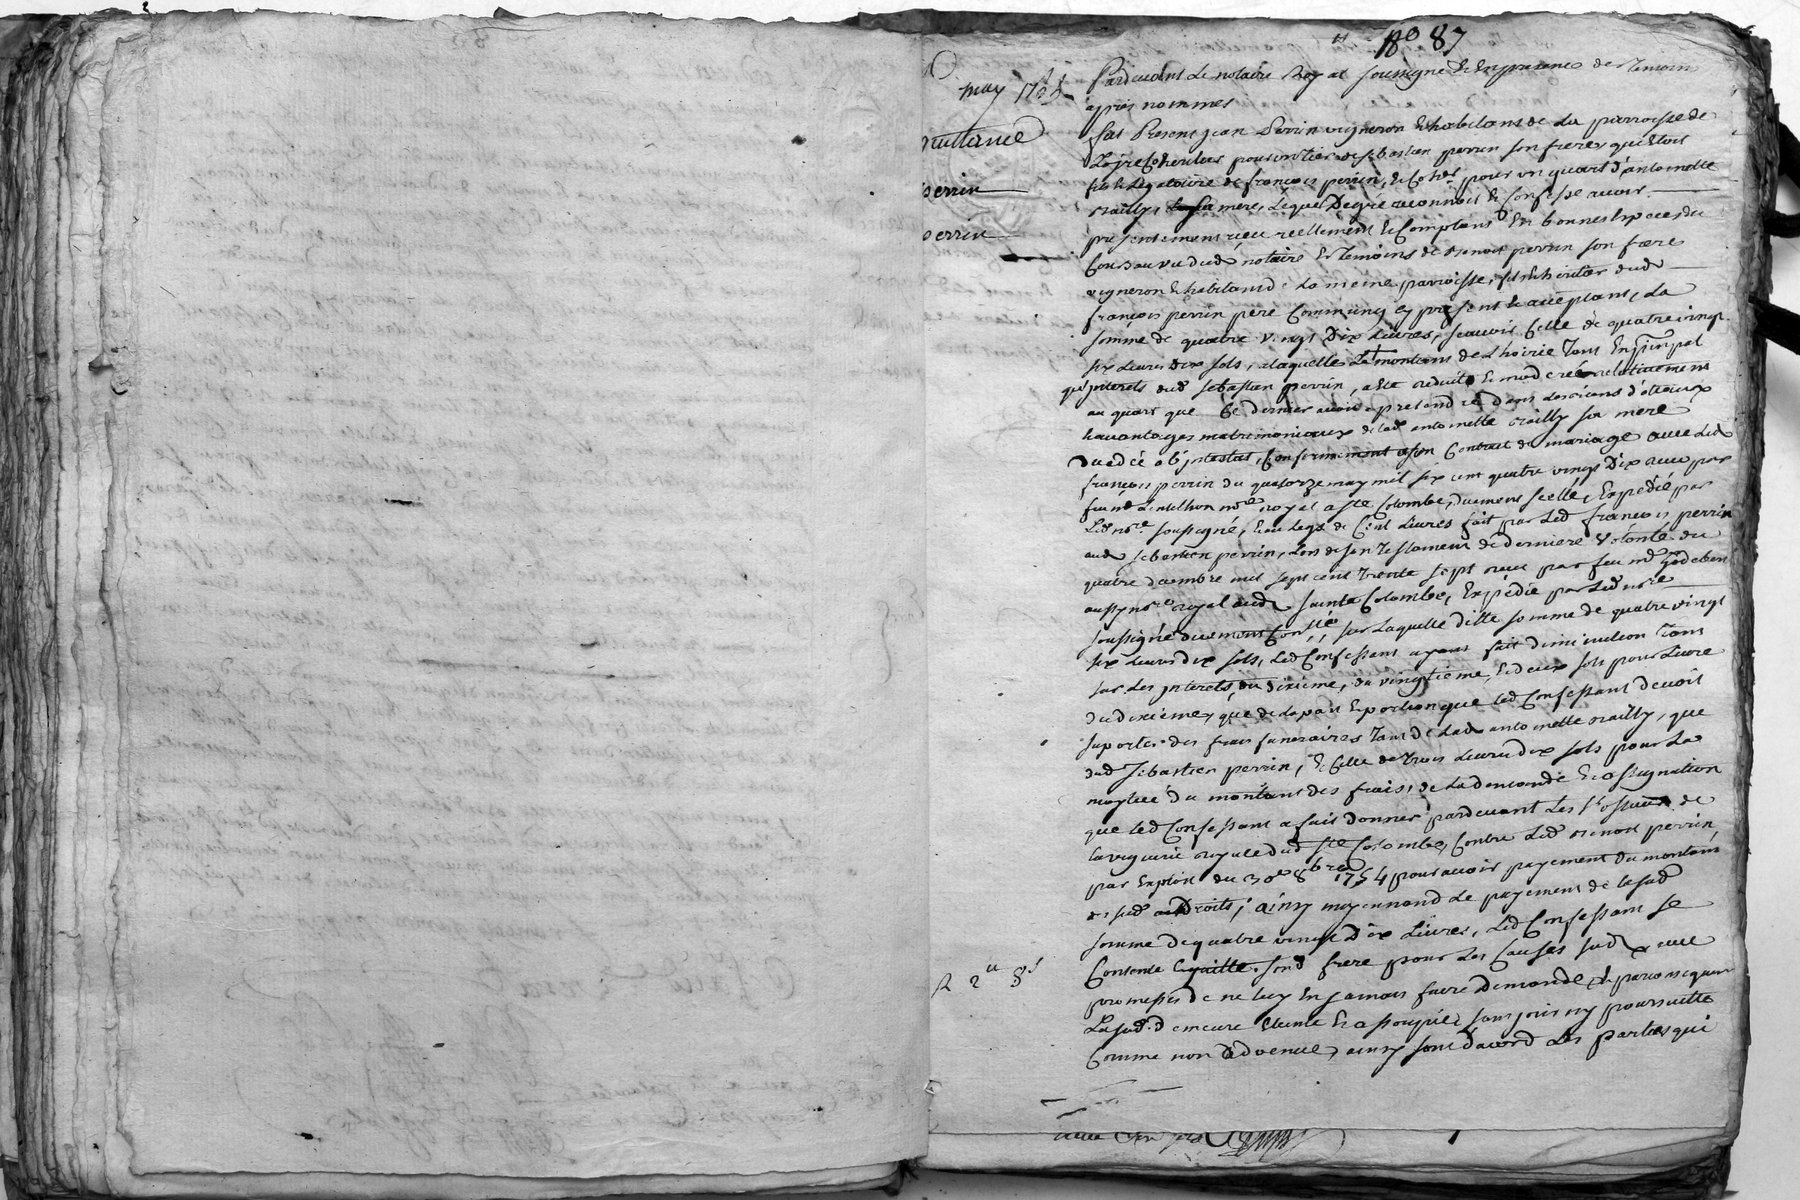 n° 87
may 1755
quittance
perrin
perrin
Pardevant Le notaire Royal soussigné & En presence des temoins
apres nommes
fut Present jean Perrin vigneron & habitans de La parroisse de
Loyre Coheritier pour un tiers de sebastien perrin son frere, qui Etoit
fils & Legataire de françois perrin, & Coher. pour un quart d'antoinette
sa mere, Lequel De gré reconnoit & Confesse avoir
presentement reçu reellement & Comptant En bonnes Especes du
Cours au vu dud. notaire & temoins de Benoit perrin son frere
vigneron & habitant de La meme parroisse, fils & heritier dud.
françois perrin pere Commun icy present & acceptant, La
somme de quatre vingt Dix Livres, scavoir Celle de quatre vingt
six Livres Dix sols, a laquelle Le montant de L'hoirie tant En principal
qu'interets dud. sebastien perrin, a eté reduit & moderé relativement
au quart que Ce dernier avoit a pretendre Dans Les
& avantages matrimoniaux de lad. antoinette sa mere
decedée ab intestat, Conformement a son Contrat de mariage avec Led.
françois perrin du quatorze may mil six cent quatre vingt Dix reçu par
feu me notre royal a Ste Colombe, duement scellé, Expedié par
Led. nore soussigné, & au Legs de Cent Livres fait par Led. françois perrin
aud. sebastien perrin, Lors de son testament de derniere volonté du
quatre decembre mil sept cent trente sept reçu par feu me
aussy nore royal aud. Sainte Colombe, Expedié par Led. nore
soussigné duement Conllé, sur Laquelle ditte somme de quatre vingt
six Livres dix sols, Led. Confessant ayant fait diminution tant
sur Les interets du dixieme, du vingtieme, & deux sols pour Livre
du dixieme, que de La part & portion que led. Confessant devoit
suporter des frais funeraires tant de Lad. antoinette que
dud. sebastien perrin, & Celle de trois Livres dix sols pour La
moytié du montant des frais, de La demande & assignation
que led. Confessant a fait donner pardevant Les de
La viguerie royale dud. Ste Colombe, Contre Led. Benoit perrin
par Exploit du 30e 8bre 1754 pour avoir payement du montant
desud. Droits; ainsy moyennant Le payement de lasud.
somme de quatre vingt Dix Livres, Led. Confessant se
Contente & quitte. sond. frere pour Les Causes susd. avec
promesses de ne luy En jamais faire Demande, & par consequent
Lasud. demeure Eteinte & assoupie, sans pouvoir poursuitte
Comme non advenue, ainsy sont d'acord Les parties qui
R 2ll 8s